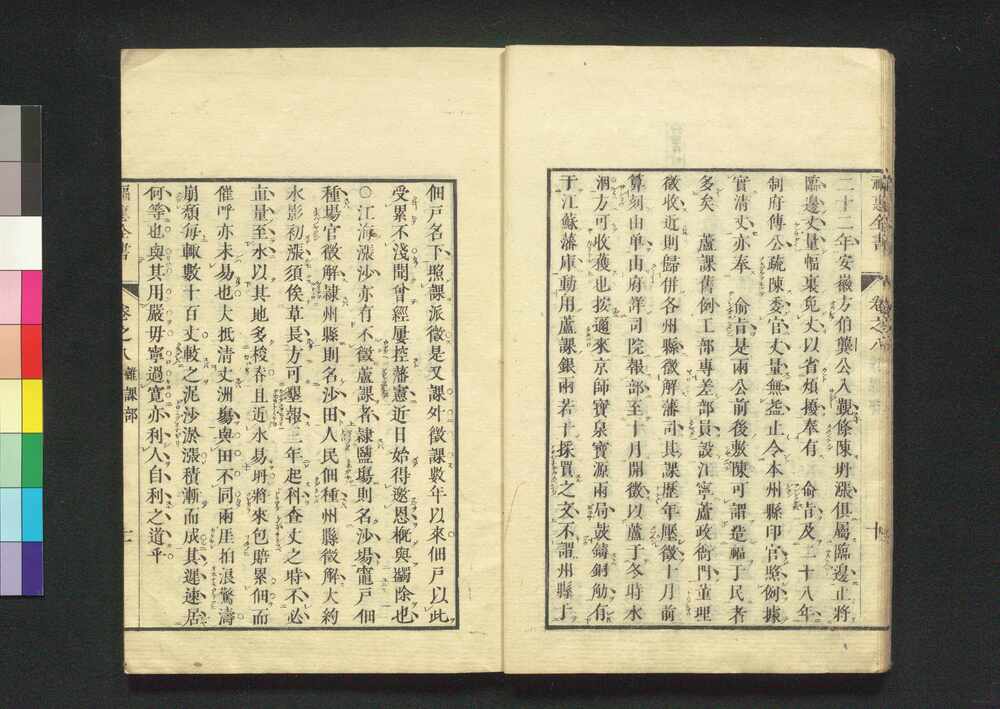 二十二年安徽方伯龔公入覲條陳坍漲俱屬臨邊止將
臨邊丈量幅裏免丈以省煩擾奉有　俞旨及二十八年
制府傅公疏陳委官丈量無益止令本州縣印官照例據
實清丈亦奉　俞旨是兩公前後敷陳可謂造福于民者
多矣　蘆課舊例工部專差部員設江寧蘆政衙門董理
徵收近則歸併各州縣徵解藩司其課歷年壓徵十月前
算刻由单由府詳司院報部至十月開徵以蘆于冬時水
涸方可收獲也按邇來京師寶泉寶源兩局鼓鑄銅觔有
于江蘇藩庫動用蘆課銀兩若干採買之文不謂州縣于
福惠全書
卷之八
十
佃戶名下照課派徵是又課外徵課數年以來佃戶以此
受累不淺聞曾經屢控藩憲近日始得邀恩槪與蠲除也
○江海漲沙亦有不徵蘆課者隸鹽場則名沙場竈戶佃
種場官徵解隸州縣則名沙田人民佃種州縣徵解大約
水影初漲須俟草長方可墾報三年起科查丈之時不必
直量至水以其地多梭存且近水易坍將來包賠累佃而
催呼亦未易也大抵清丈洲場與田不同兩厓拍浪驚濤
崩頹每輒數十百丈較之泥沙淤漲積漸而成其遲速居
何等也與其用嚴毋寧過寬亦利人自利之道乎
福惠全書
卷之八
雜課部
十一